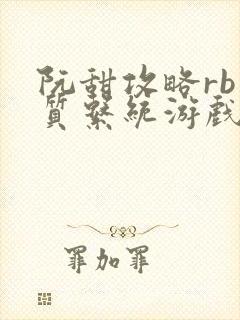 阮甜攻略rb
質繫統游戲
罪加罪